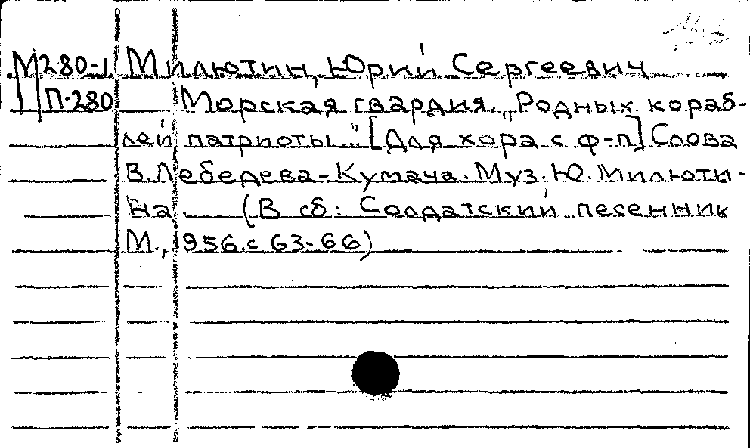 М280-1 Милютин, Юрий Сергеевич
П-280 Морская гвардия. „Родных кораб-
лей патриоты..." [Для хора с ф-п] Слова
В. Лебедева-Кумача. Муз. Ю. Милюти-
на. (В сб: Солдатский песенник
М., 1956. с 63-66)